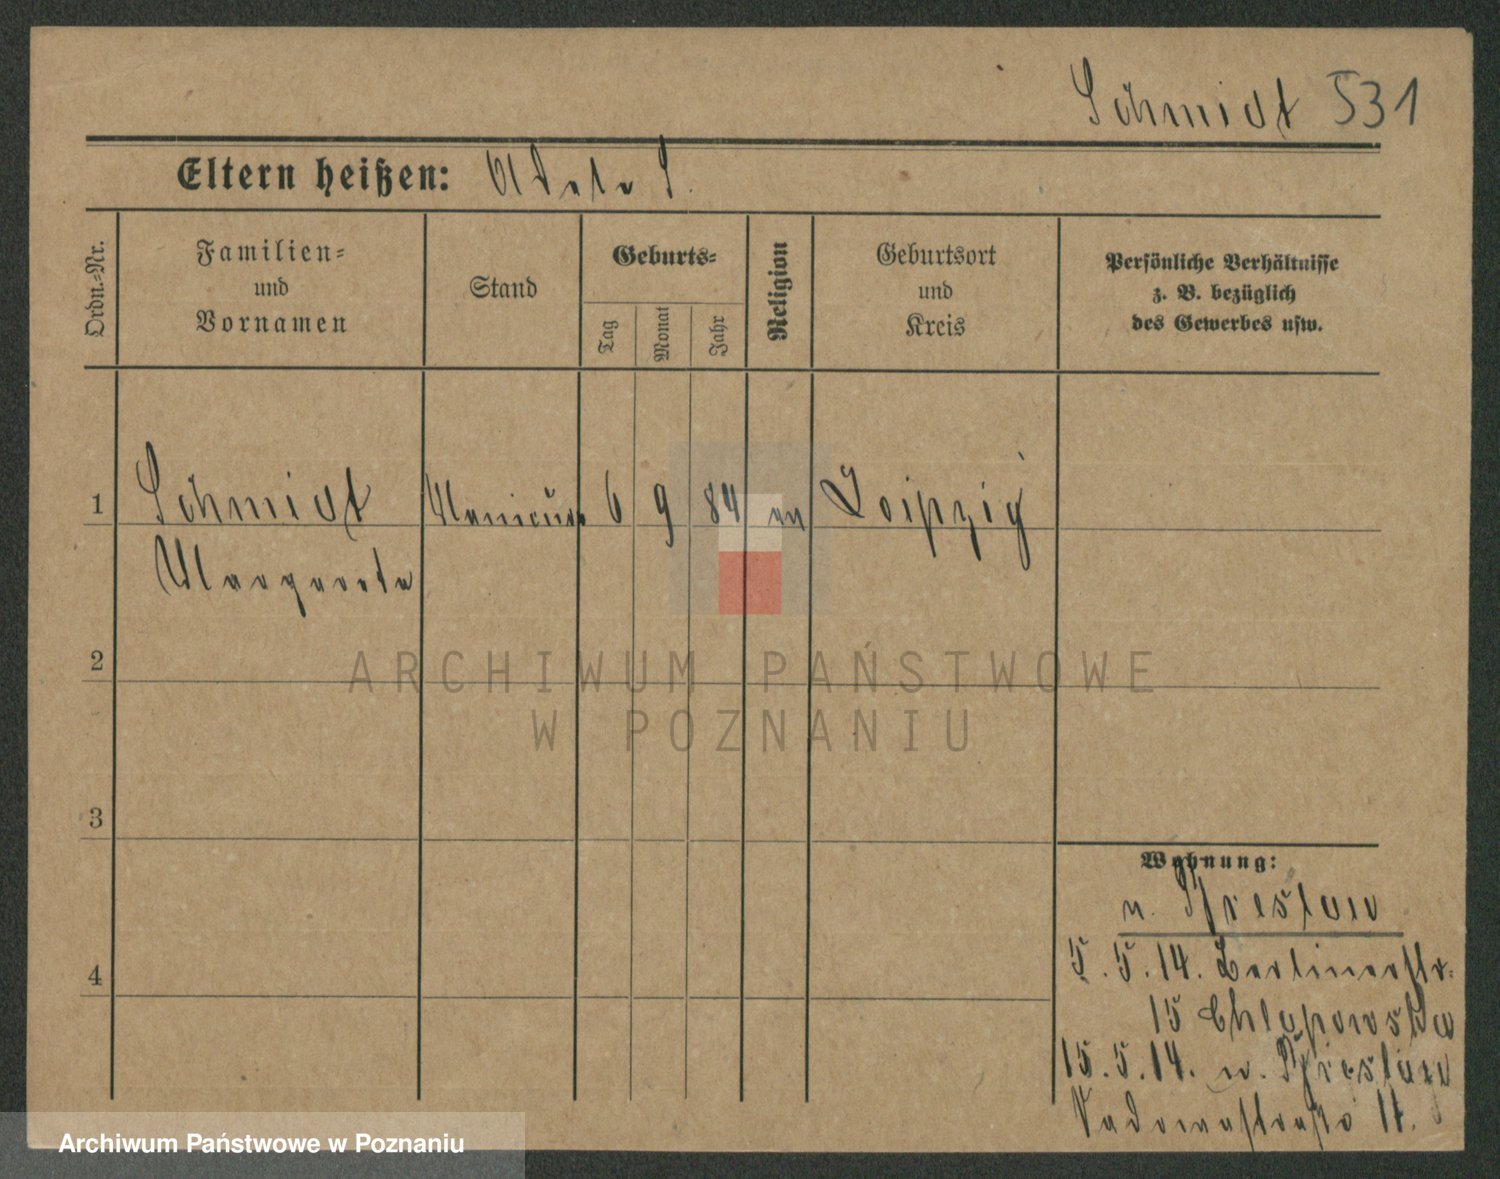 Schmidt 531
Eltern heißen: Adele S.
Ordn.-Nr.
Familien-
und
Vornamen
Stand
Geburts-
Tag
Monat
Jahr
Religion
Geburtsort
und
Kreis
Persönliche Verhältnisse
z. B. bezüglich
des Gewerbes usw.
1 Schmidt 6 9 84 Leipzig
Margarete
2
ARCHIWUM PAŃSTWOWE
W POZNANIU
3
Wohnung:
4
5.5.14. Berlinerstr.
15 Chlapowska
15.5.14.
Archiwum Państwowe w Poznaniu